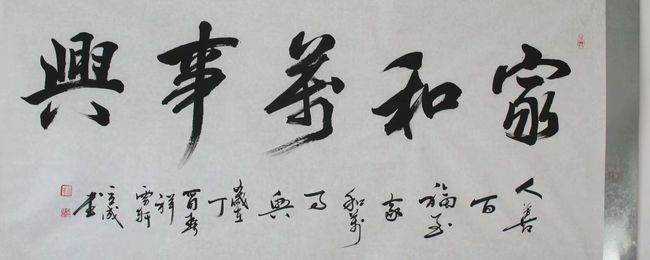 家和萬事興
人善百福至家和萬事興歲在丁酉春祥雲軒書